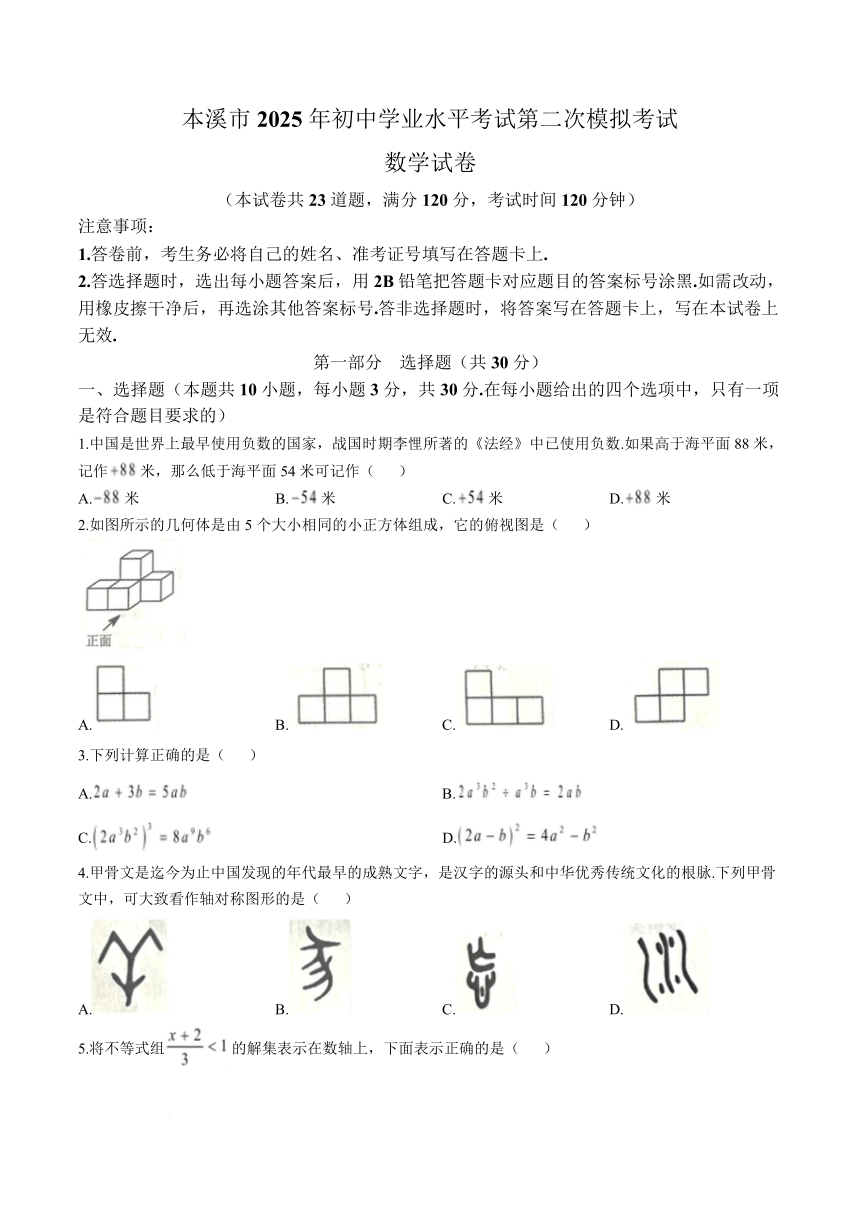 本溪市2025年初中学业水平考试第二次模拟考试
数学试卷
（本试卷共23道题，满分120分，考试时间120分钟）
注意事项：
1.答卷前，考生务必将自己的姓名、准考证号填写在答题卡上.
2.答选择题时，选出每小题答案后，用2B铅笔把答题卡对应题目的答案标号涂黑.如需改动，
用橡皮擦干净后，再选涂其他答案标号.答非选择题时，将答案写在答题卡上，写在本试卷上
无效.
第一部分 选择题（共30分）
一、选择题（本题共10小题，每小题3分，共30分.在每小题给出的四个选项中，只有一项
是符合题目要求的）
1.中国是世界上最早使用负数的国家，战国时期李悝所著的《法经》中已使用负数.如果高于海平面88米，
记作+88米，那么低于海平面54米可记作（ ）
A.−88米 B.−54米 C.+54米 D.+88米
2.如图所示的几何体是由5个大小相同的小正方体组成，它的俯视图是（ ）
正面
A. B. C. D.
3.下列计算正确的是（ ）
A.2a + 3b = 5ab B.2a³b² ÷ a³b = 2ab
C.(2a³b²)³ = 8a⁹b⁶ D.(2a − b)² = 4a² − b²
4.甲骨文是迄今为止中国发现的年代最早的成熟文字，是汉字的源头和中华优秀传统文化的根脉.下列甲骨
文中，可大致看作轴对称图形的是（ ）
A. B. C. D.
5.将不等式组(x + 2)/3 < 1的解集表示在数轴上，下面表示正确的是（ ）